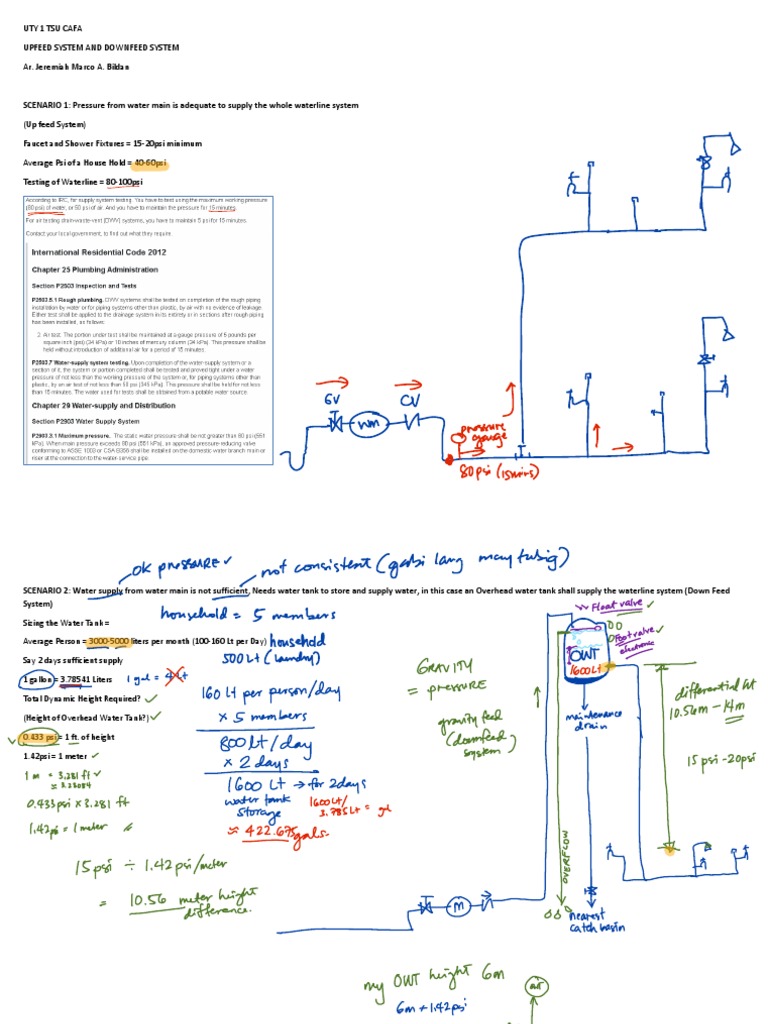 UTY 1 TSU CAFA
UPFEED SYSTEM AND DOWNFEED SYSTEM
Ar. Jeremiah Marco A. Bildan
SCENARIO 1: Pressure from water main is adequate to supply the whole waterline system
(Upfeed System)
Faucet and Shower Fixtures = 15-20psi minimum
Average Psi of a House Hold = 40-60psi
Testing of Waterline = 80-100psi
According to IRC, for supply system testing. You have to test using the maximum working pressure
(80 psi) of water, or 50 psi of air. And you have to maintain the pressure for 15 minutes.
For air testing drain-waste-vent (DWV) systems, you have to maintain 5 psi for 15 minutes.
Contact your local government, to find out what they require.
International Residential Code 2012
Chapter 25 Plumbing Administration
Section P2503 Inspection and Tests
P2503.5.1 Rough plumbing. DWV systems shall be tested on completion of the rough piping
installation by water or for piping systems other than plastic, by air with no evidence of leakage.
Either test shall be applied to the drainage system in its entirety or in sections after rough piping
has been installed, as follows:
2. Air test. The portion under test shall be maintained at a gauge pressure of 5 pounds per
square inch (psi) (34 kPa) or 10 inches of mercury column (34 kPa). This pressure shall be
held without introduction of additional air for a period of 15 minutes.
P2503.7 Water-supply system testing. Upon completion of the water-supply system or a
section of it, the system or portion completed shall be tested and proved tight under a water
pressure of not less than the working pressure of the system or, for piping systems other than
plastic, by an air test of not less than 50 psi (345 kPa). This pressure shall be held for not less
than 15 minutes. The water used for tests shall be obtained from a potable water source.
Chapter 29 Water-supply and Distribution
Section P2903 Water Supply System
P2903.3.1 Maximum pressure. The static water pressure shall be not greater than 80 psi (551
kPa). When main pressure exceeds 80 psi (551 kPa), an approved pressure-reducing valve
conforming to ASSE 1003 or CSA B356 shall be installed on the domestic water branch main or
riser at the connection to the water-service pipe.
GV
CV
WM
pressure
gauge
80psi (15mins)
OK PRESSURE ✓
not consistent (gabi lang may tubig)
SCENARIO 2: Water supply from water main is not sufficient, Needs water tank to store and supply water, in this case an Overhead water tank shall supply the waterline system (Down Feed
System)
household = 5 members
Sizing the Water Tank=
Average Person = 3000-5000 liters per month (100-160 Lt per Day) household
Say 2 days sufficient supply
500Lt (laundry)
1 gallon = 3.78541 Liters
1 gal = 4 Lt
Total Dynamic Height Required? ✓
(Height of Overhead Water Tank?) ✓
✓ 0.433 psi = 1 ft. of height
1.42psi = 1 meter ✓
1 m = 3.281 ft ✓
≈ 3.28084
0.433psi x 3.281 ft
1.42psi = 1 meter
15psi ÷ 1.42psi/meter
= 10.56 meter height
difference.
160 Lt per person/day
x 5 members
800lt/day
x 2 days
1600 Lt → for 2days
water tank
storage
1600Lt/
3.785Lt = gal
≈ 422.675gals.
GRAVITY
= PRESSURE
gravity feed
(downfeed
system)
Float valve ✓
Footvalve ✓
electronic
OWT
1600Lt
maintenance
drain
differential ht
10.56m - 14m
15psi-20psi
OVERFLOW
M
nearest
catch basin
my OWT height 6m
6m + 1.42psi